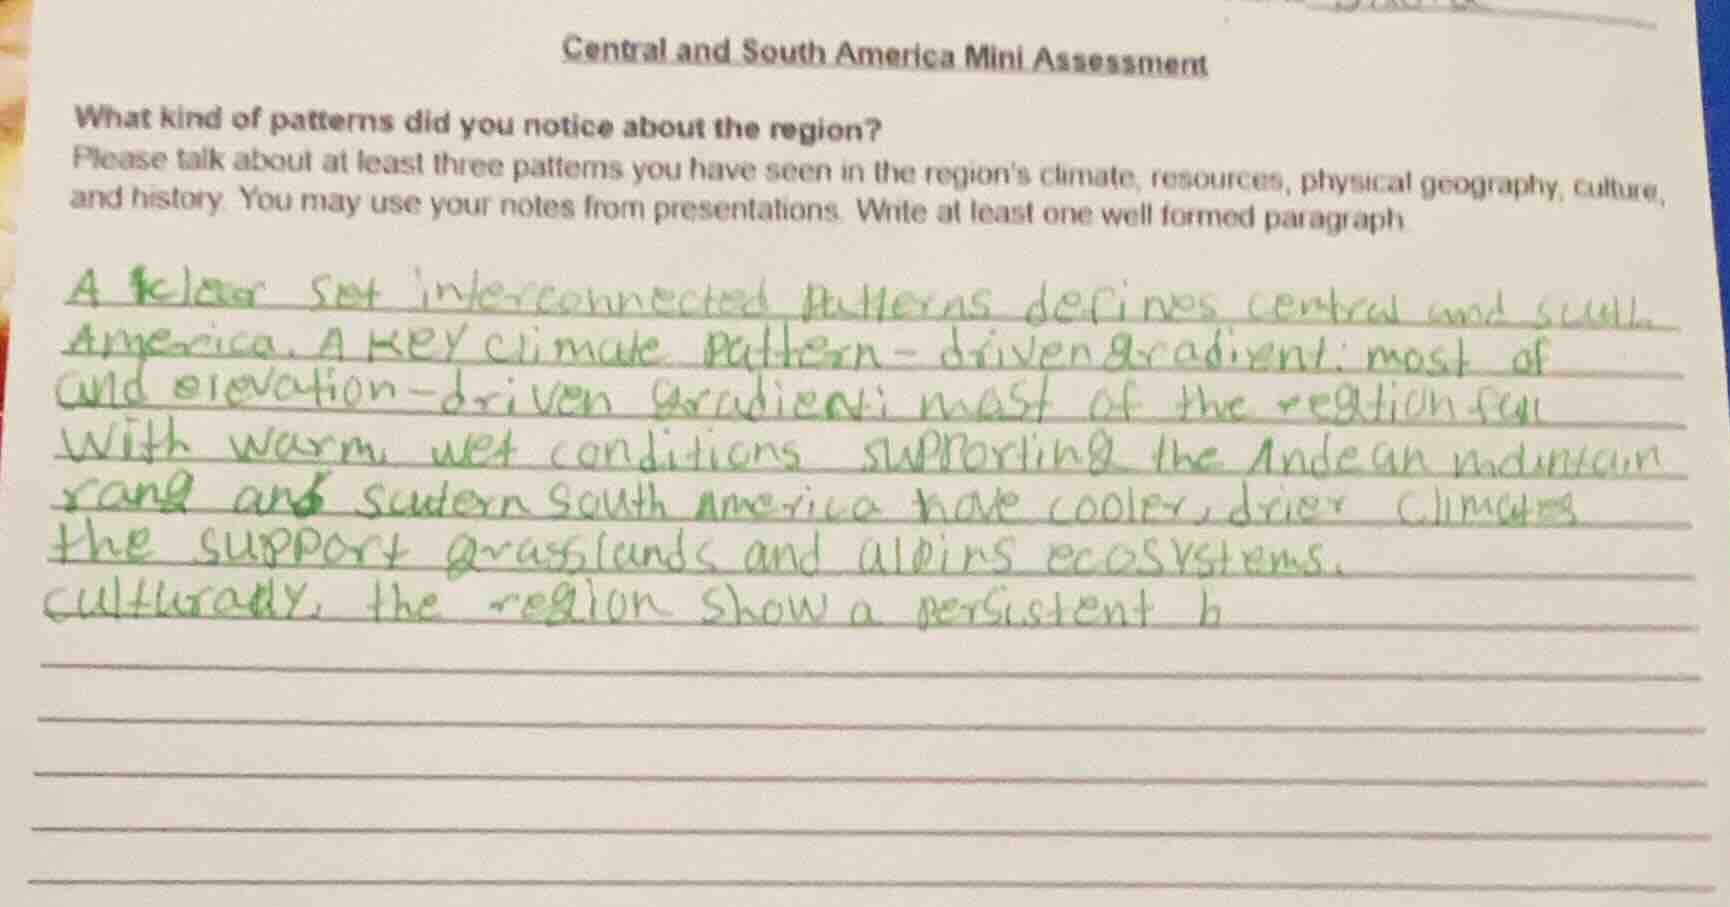 Central and South America Mini Assessment
What kind of patterns did you notice about the region?
Please talk about at least three patterns you have seen in the region's climate, resources, physical geography, culture,
and history. You may use your notes from presentations. Write at least one well formed paragraph
A clear set interconnected patterns defines central and
America. A KEY climate pattern - driven gradient: most of
and elevation-driven gradient: most of the regtion fall
With warm, wet conditions supporting the Andean mountain
rang and scutern South America have cooler, drier climates
the support grasslands and alpins ecosystems.
culturally, the region show a persistent b